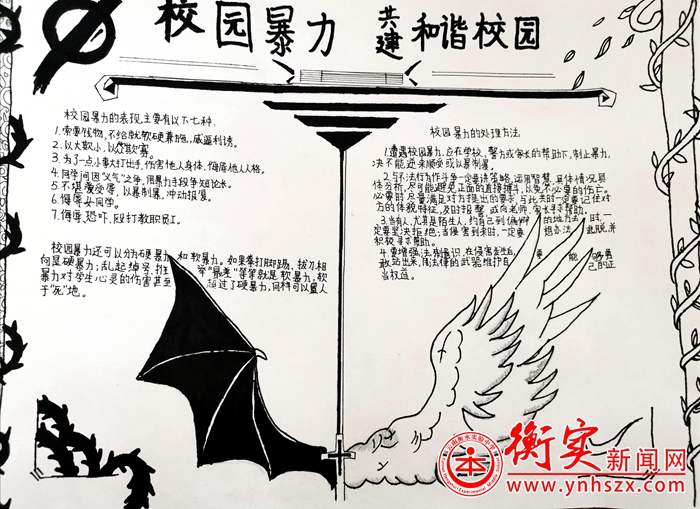 校园暴力 共建 和谐校园
校园暴力的表现主要有以下七种:
1.索要钱物,不给就软硬兼施,威逼利诱。
2.以大欺小,以众欺寡。
3.为了一点小事大打出手,伤害他人身体、侮辱他人人格。
4.同学间因"义气"之争,用暴力手段争短论长。
5.不堪 受辱,以暴制暴,冲动报复。
6.侮辱女同学。
7.侮辱、恐吓、殴打教职员工。
校园暴力还可以分为硬暴力和软暴力。如果拳打脚踢、拔刀相
向是硬暴力;乱起绰号、 "最差"等等就是软暴力,软
暴力对学生心灵的伤害甚至超过了硬暴力,同样可以置人
于"死"地。
校园暴力的处理方法
1.遭遇校园暴力,应在学校、警方或家长的帮助下,制止暴力,
决不能逆来顺受或以暴制暴。
2.与不法行为作斗争一定要讲策略,运用智慧,具体情况具
体分析,尽可能避免正面的直接搏斗,以免不必要的伤亡。
必要时,尽量满足对方提出的要求,与此来时一定要记住对
方的体貌特征,及时报警,或向老师、家长寻求帮助。
3.当有人,尤其是陌生人,约自己到偏僻 的地方 时,一
定要坚决拒绝;当侵害到来时,一定要 想办法 脱,并
积极寻求帮助。
4.要增强法制意识,在侵害发生后, 要 能 够勇
敢站出来,用法律的武器维护自 己的正
当权益。
云南衡水实验中学
衡实新闻网
www.ynhszx.com